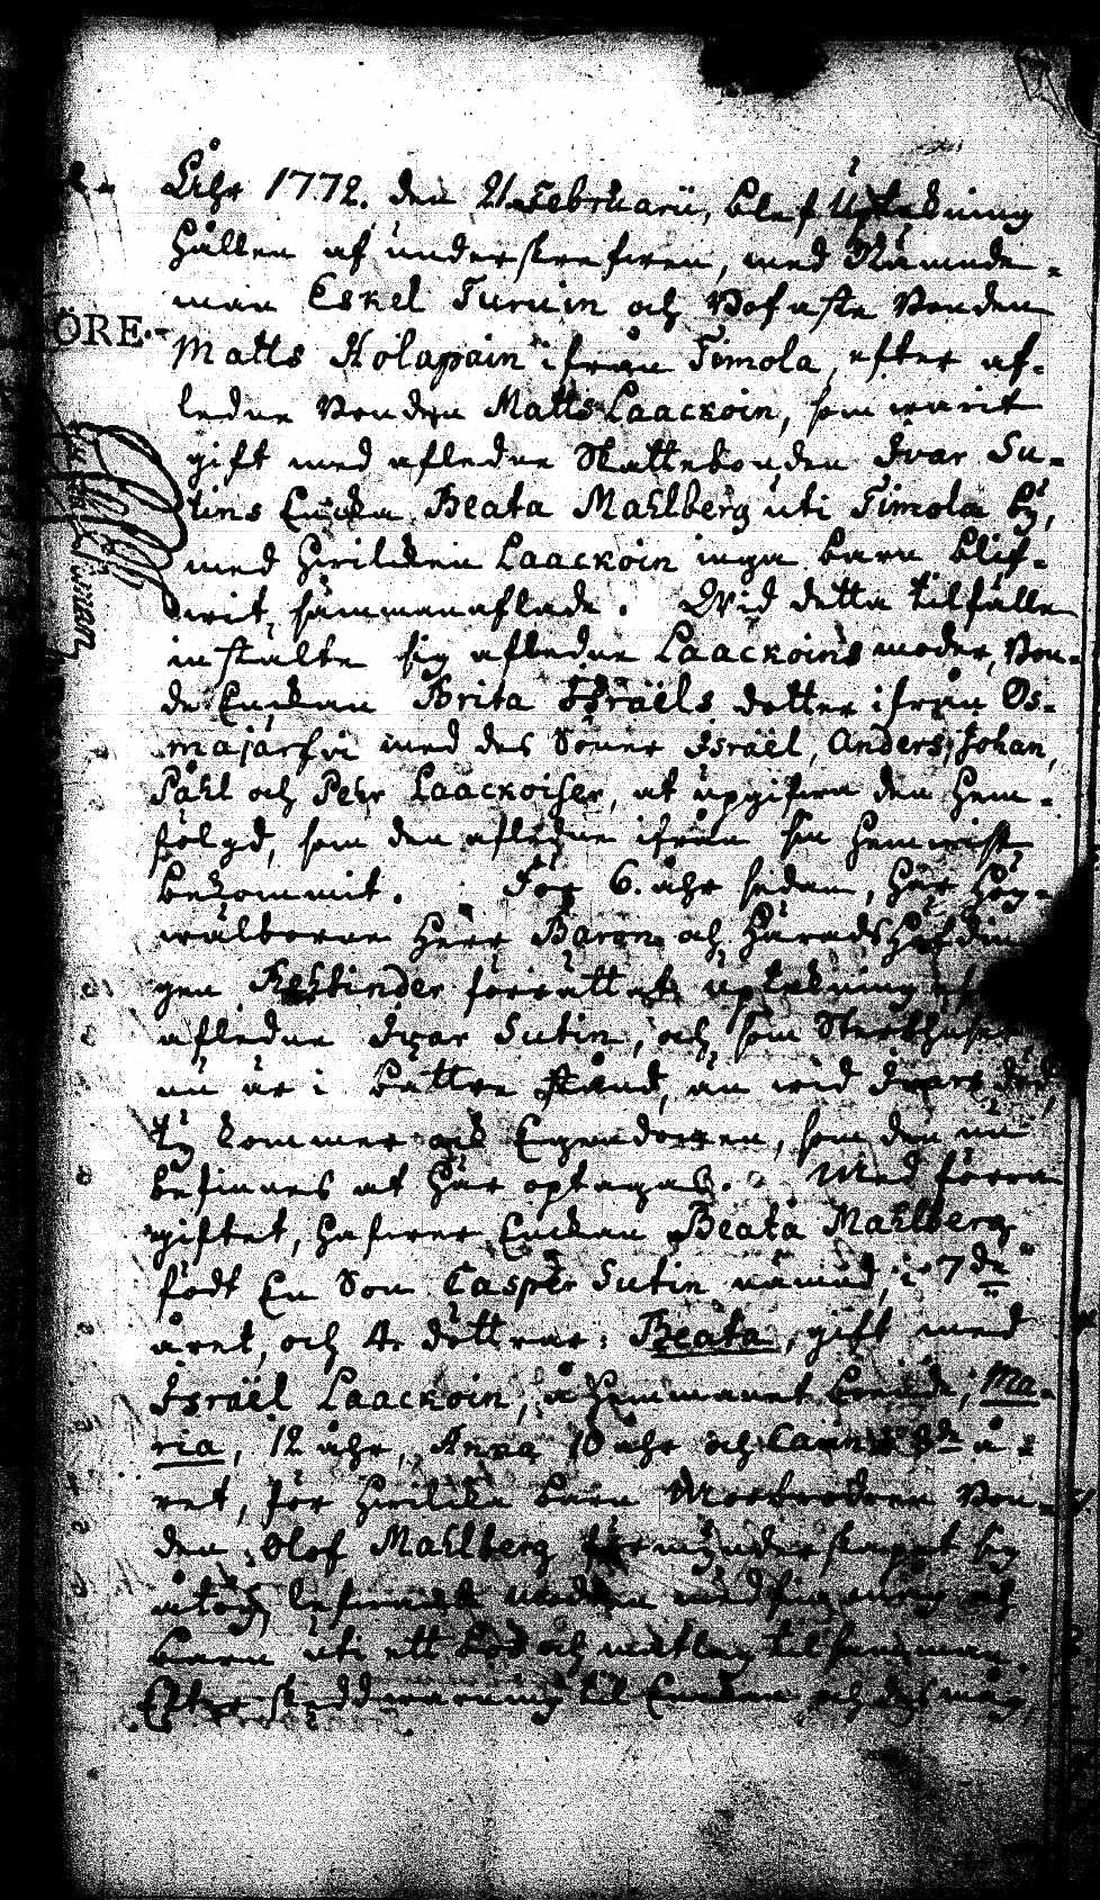 Åhr 1772. den 21 Februarii, blef Upteckning
hållen af underskrefwen, med Nämnde-
man Eskel Turuin och Bofaste Bonden
ÖRE.
Matts Holapain ifrån Timola, efter af-
ledne Bonden Matts Laackoin, som warit
gift med afledne Skattebonden Ivar Su-
tins Encka Beata Mahlberg uti Timola by,
med hwilken Laackoin inga barn blif-
wit sammanaflade. Wid detta tilfälle
instälte sig afledne Laackoins moder, Bon-
de Enckan Brita Israëls dotter ifrån Os-
majärfwi med des Söner Israël, Anders, Johan,
Påhl och Pehr Laackoiser, at upgifwa den hem-
fölgd, som den afledne ifrån sin hemwist
bekommit. För 6. åhr sedan, har Hög-
wälborne Herr Baron och Häradshöfdin-
gen Rehbinder förrättat upteckning
afledne Ivar Sutin, och som Sterbhuset
nu är i bättre stånd, än wid Ivars död,
ty kommer ock Egendomen, som den nu
befinnes at här optagas. Med förra
giftet, hafwer Enckan Beata Mahlberg
födt En Son Casper Sutin nämnd, i 7de
året, och 4. döttrar: Beata, gift med
Israël Laackoin, å Hemmanet boende; Ma-
ria, 12 åhr, Anna 10 åhr och 8de å-
ret, för hwilka barn Morbrodren Bon-
den Olof Mahlberg förmynderskapet sig
åtog, med sin måg och
barn uti ett bod och matlag tilsamman.
Efter skedd warning til Enckan och des måg,